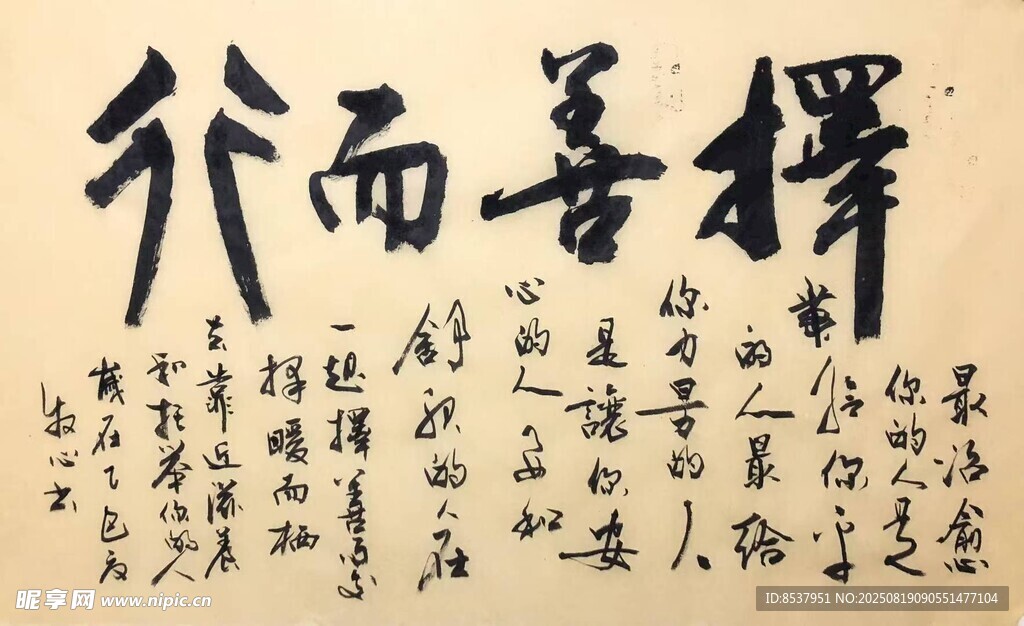 擇善而行
最治愈
你的人是
你平
的人最给
你力量的人
是讓你安
心的人多和
舒服的人在
一起擇善而交
擇暖而栖
去靠近滋養
和托举你的人
歲在乙巳夏
牧心书
昵享网 www.nipic.cn
ID:8537951 NO:20250819090551477104